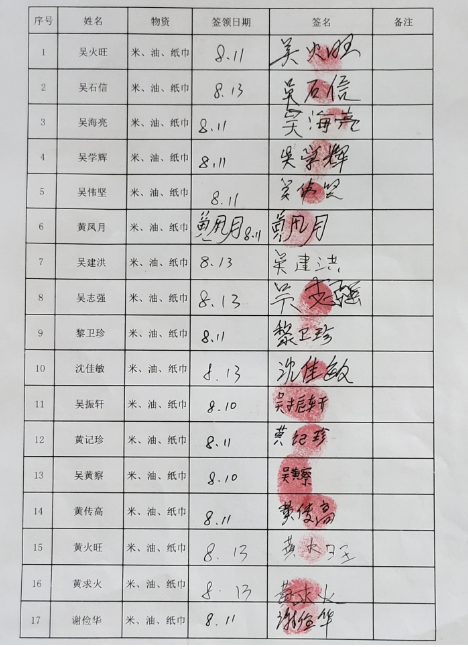 序号 姓名 物资 签领日期 签名 备注
1 吴火旺 米、油、纸巾 8.11 吴火旺
2 吴石信 米、油、纸巾 8.13 吴石信
3 吴海亮 米、油、纸巾 8.11 吴海亮
4 吴学辉 米、油、纸巾 8.11 吴学辉
5 吴伟坚 米、油、纸巾 8.11 吴伟坚
6 黄凤月 米、油、纸巾 黄凤月 8.11 黄凤月
7 吴建洪 米、油、纸巾 8.13 吴建洪
8 吴志强 米、油、纸巾 8.13 吴志强
9 黎卫珍 米、油、纸巾 8.11 黎卫珍
10 沈佳敏 米、油、纸巾 8.13 沈佳敏
11 吴振轩 米、油、纸巾 8.10 吴振轩
12 黄记珍 米、油、纸巾 8.11 黄纪珍
13 吴黄察 米、油、纸巾 8.10 吴黄察
14 黄传高 米、油、纸巾 8.11 黄传高
15 黄火旺 米、油、纸巾 8.13 黄火旺
16 黄求火 米、油、纸巾 8.13 黄求火
17 谢俭华 米、油、纸巾 8.11 谢俭华